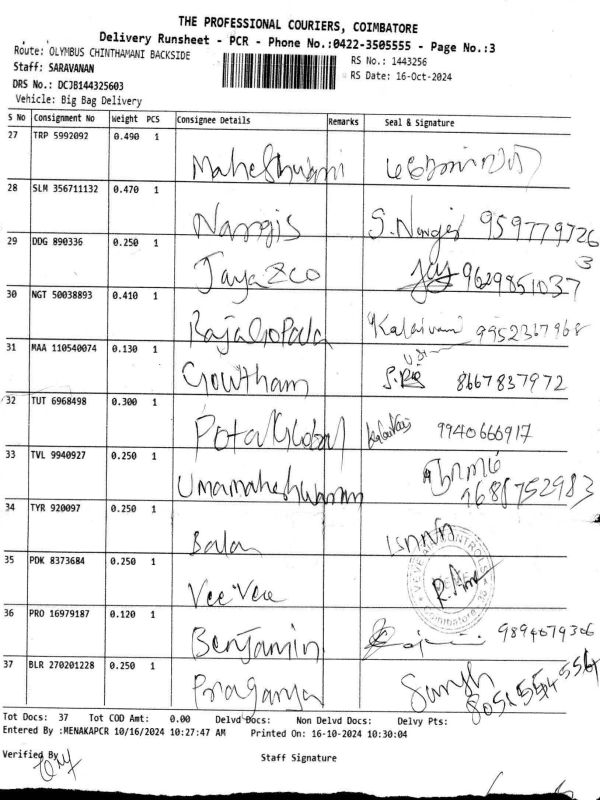 THE PROFESSIONAL COURIERS, COIMBATORE
Delivery Runsheet - PCR - Phone No.:0422-3505555 - Page No.:3
Route: OLYMBUS CHINTHAMANI BACKSIDE
RS No.: 1443256
Staff: SARAVANAN
RS Date: 16-Oct-2024
DRS No.: DCJB144325603
Vehicle: Big Bag Delivery
S No Consignment No Weight PCS Consignee Details Remarks Seal & Signature
27 TRP 5992092 0.490 1 Maheshwari
28 SLM 356711132 0.470 1 Nargis S. Nargis 9597797263
29 DDG 890336 0.250 1 Jaya &co Jay 9629851037
30 NGT 50038893 0.410 1 RajaGopala Kalaivani 9952367968
31 MAA 110540074 0.130 1 Gowtham 8667837972
32 TUT 6968498 0.300 1 Potal Global 9940666917
33 TVL 9940927 0.250 1 Umamaheshwaran
34 TYR 920097 0.250 1 Balan
35 PDK 8373684 0.250 1 Vee Vee
36 PRO 16979187 0.120 1 Benjamin 9894079306
37 BLR 270201228 0.250 1 Praganya
Tot Docs: 37 Tot COD Amt: 0.00 Delvd Docs: Non Delvd Docs: Delvy Pts:
Entered By :MENAKAPCR 10/16/2024 10:27:47 AM Printed On: 16-10-2024 10:30:04
Verified By
Staff Signature